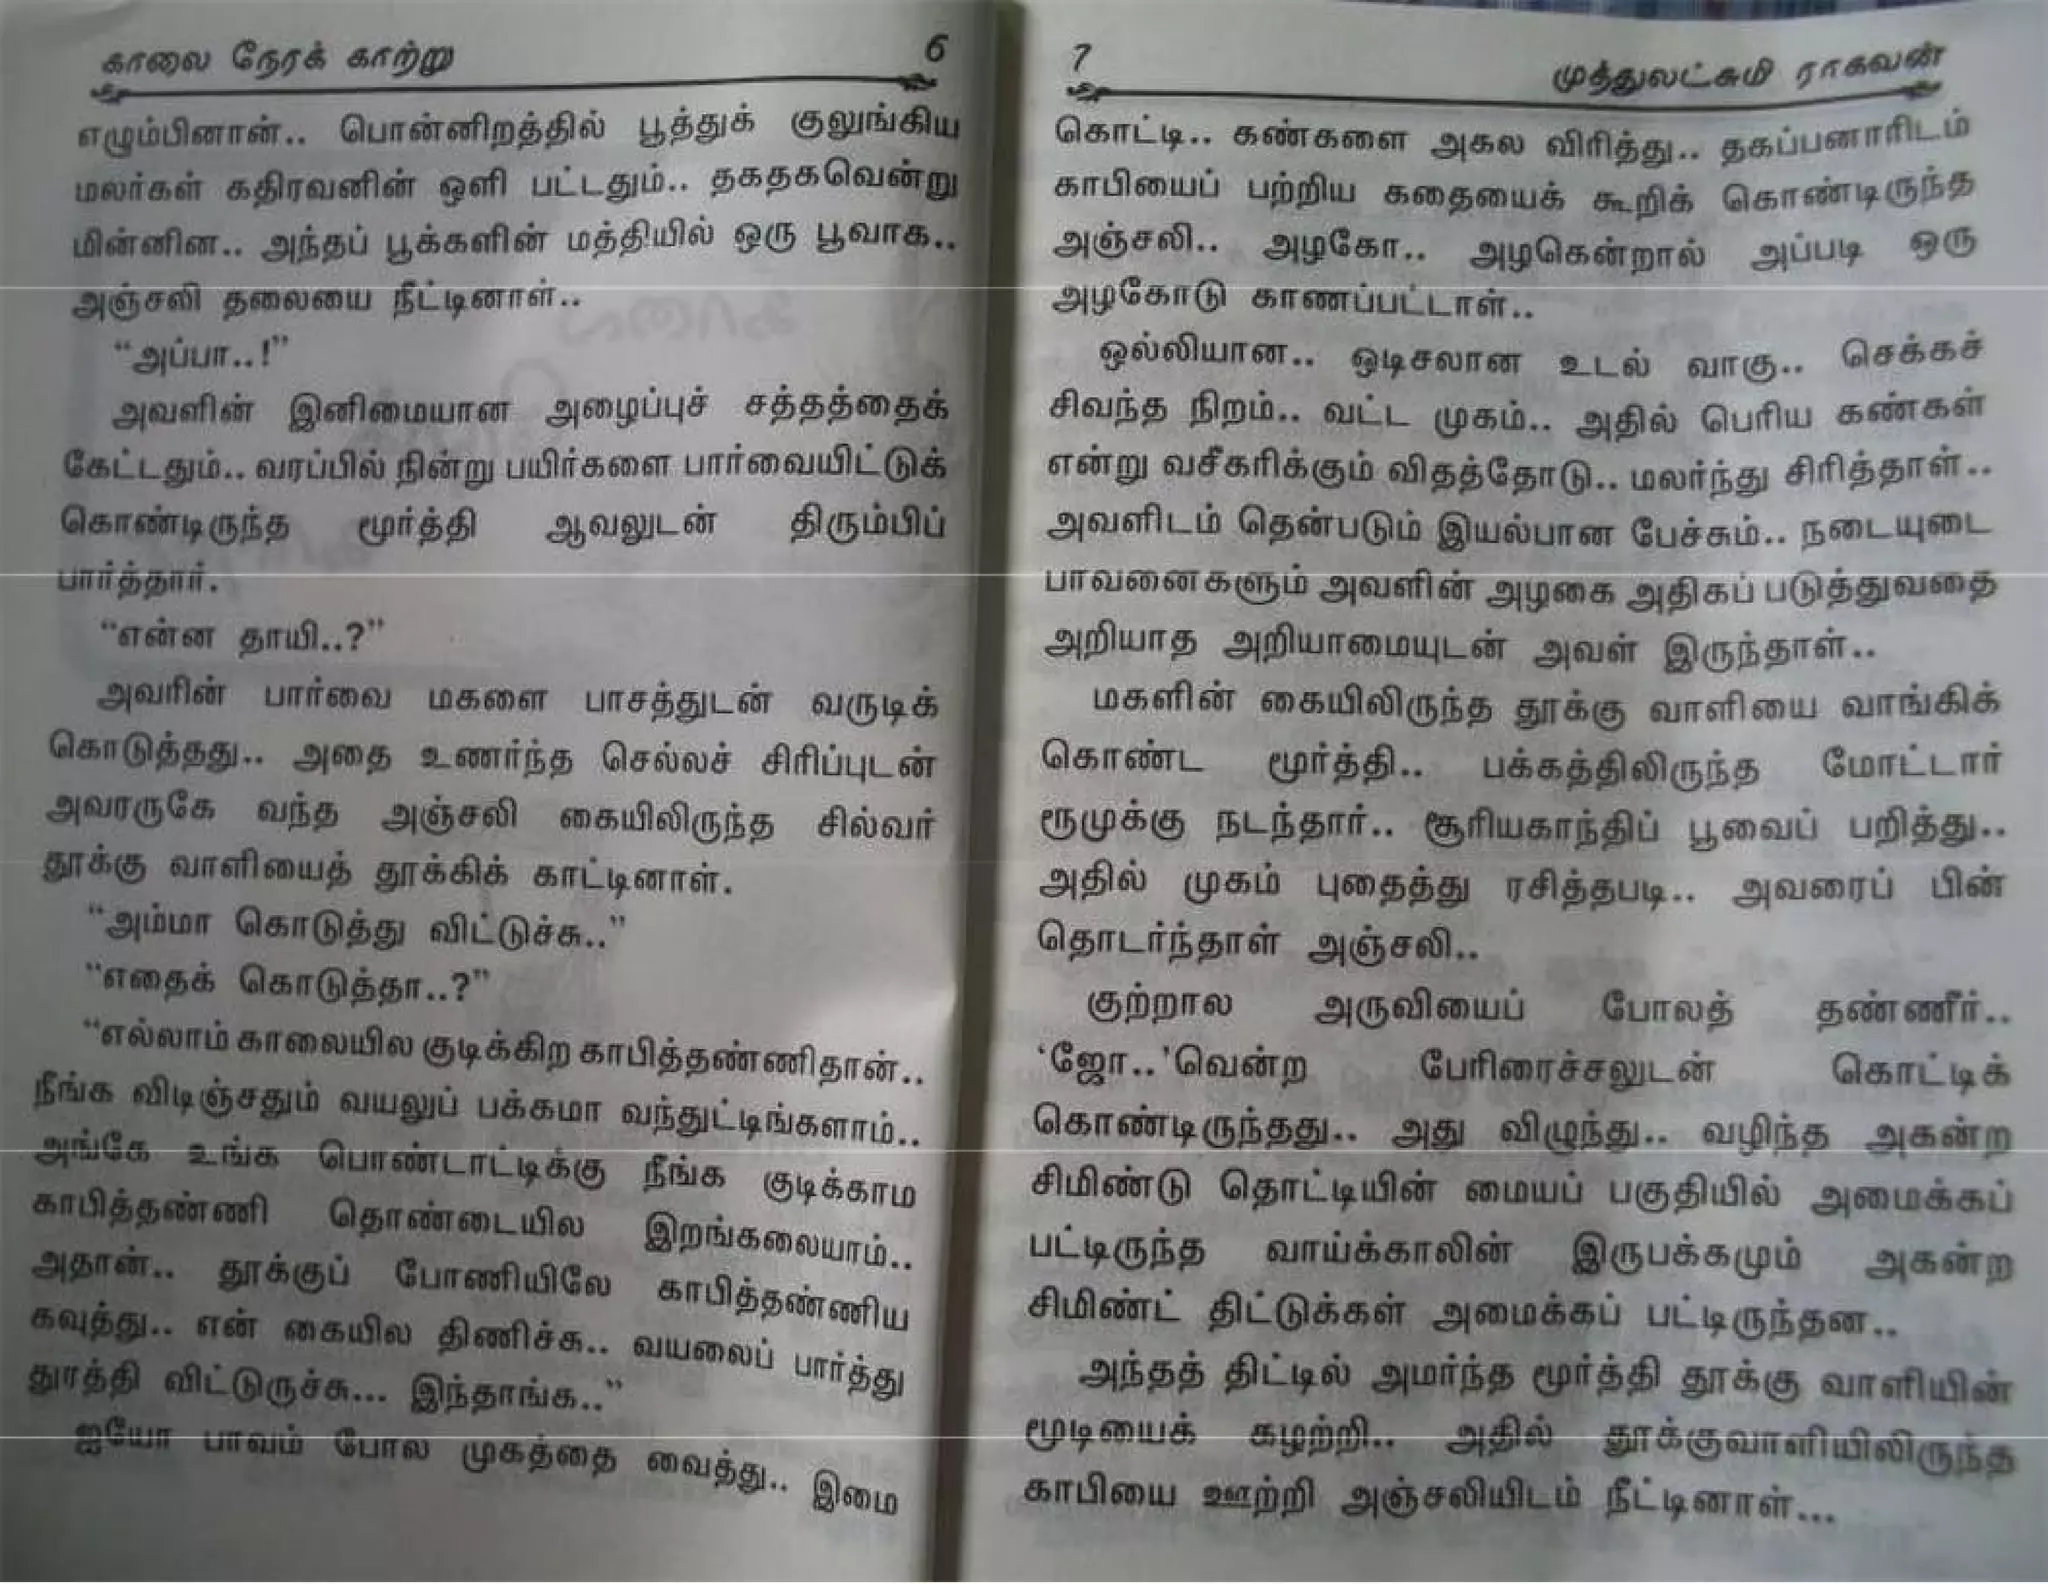 காலை நேரக் காற்று 6
எழும்பினான்.. பொன்னிறத்தில் பூத்துக் குலுங்கிய
மலர்கள் கதிரவனின் ஒளி பட்டதும்.. தகதகவென்று
மின்னின.. அந்தப் பூக்களின் மத்தியில் ஒரு பூவாக..
அஞ்சலி தலையை நீட்டினாள்..
“அப்பா..!”
அவளின் இனிமையான அழைப்புச் சத்தத்தைக்
கேட்டதும்.. வரப்பில் நின்று பயிர்களை பார்வையிட்டுக்
கொண்டிருந்த மூர்த்தி ஆவலுடன் திரும்பிப்
பார்த்தார்.
“என்ன தாயி..?”
அவரின் பார்வை மகளை பாசத்துடன் வருடிக்
கொடுத்தது.. அதை உணர்ந்த செல்லச் சிரிப்புடன்
அவரருகே வந்த அஞ்சலி கையிலிருந்த சில்வர்
தூக்கு வாளியைத் தூக்கிக் காட்டினாள்.
“அம்மா கொடுத்து விட்டுச்சு..”
“எதைக் கொடுத்தா..?”
“எல்லாம் காலையில குடிக்கிற காபித்தண்ணிதான்..
நீங்க விடிஞ்சதும் வயலுப் பக்கமா வந்துட்டிங்களாம்..
அங்கே உங்க பொண்டாட்டிக்கு நீங்க குடிக்காம
காபித்தண்ணி தொண்டையில இறங்கலையாம்..
அதான்.. தூக்குப் போணியிலே காபித்தண்ணிய
கவுத்து.. என் கையில திணிச்சு.. வயலைப் பார்த்து
துரத்தி விட்டுருச்சு... இந்தாங்க..”
ஐயோ பாவம் போல முகத்தை வைத்து.. இமை
7 முத்துலட்சுமி ராகவன்
கொட்டி.. கண்களை அகல விரித்து.. தகப்பனாரிடம்
காபியைப் பற்றிய கதையைக் கூறிக் கொண்டிருந்த
அஞ்சலி.. அழகோ.. அழகென்றால் அப்படி ஒரு
அழகோடு காணப்பட்டாள்..
ஒல்லியான.. ஒடிசலான உடல் வாகு.. செக்கச்
சிவந்த நிறம்.. வட்ட முகம்.. அதில் பெரிய கண்கள்
என்று வசீகரிக்கும் விதத்தோடு.. மலர்ந்து சிரித்தாள்..
அவளிடம் தென்படும் இயல்பான பேச்சும்.. நடையுடை
பாவனைகளும் அவளின் அழகை அதிகப் படுத்துவதை
அறியாத அறியாமையுடன் அவள் இருந்தாள்..
மகளின் கையிலிருந்த தூக்கு வாளியை வாங்கிக்
கொண்ட மூர்த்தி.. பக்கத்திலிருந்த மோட்டார்
ரூமுக்கு நடந்தார்.. சூரியகாந்திப் பூவைப் பறித்து..
அதில் முகம் புதைத்து ரசித்தபடி.. அவரைப் பின்
தொடர்ந்தாள் அஞ்சலி..
குற்றால அருவியைப் போலத் தண்ணீர்..
‘ஜோ..’வென்ற பேரிரைச்சலுடன் கொட்டிக்
கொண்டிருந்தது.. அது விழுந்து.. வழிந்த அகன்ற
சிமிண்டு தொட்டியின் மையப் பகுதியில் அமைக்கப்
பட்டிருந்த வாய்க்காலின் இருபக்கமும் அகன்ற
சிமிண்ட் திட்டுக்கள் அமைக்கப் பட்டிருந்தன..
அந்தத் திட்டில் அமர்ந்த மூர்த்தி தூக்கு வாளியின்
மூடியைக் கழற்றி.. அதில் தூக்குவாளியிலிருந்த
காபியை ஊற்றி அஞ்சலியிடம் நீட்டினாள்...